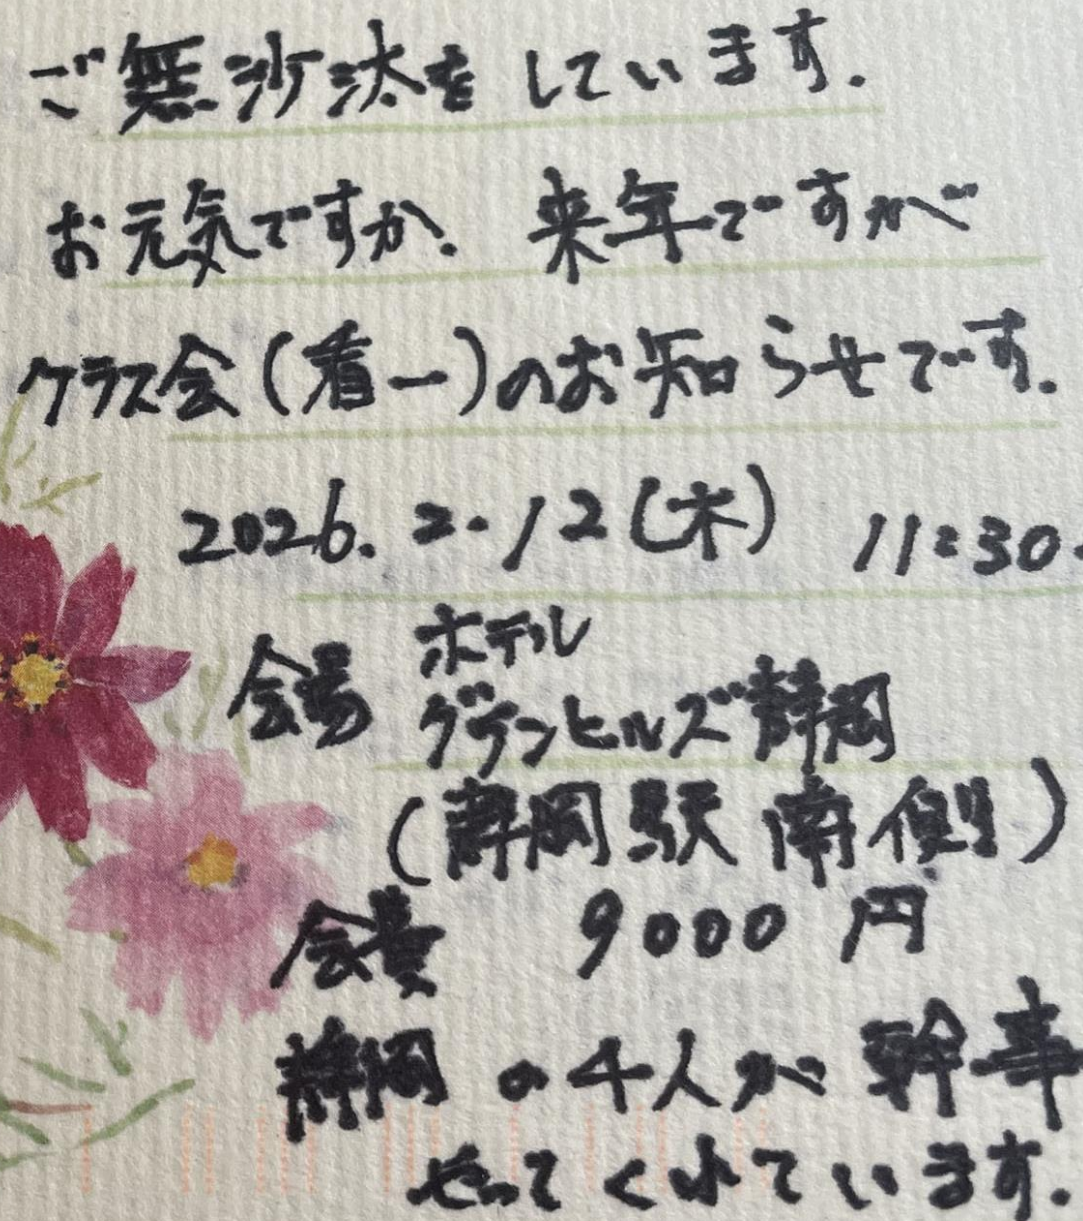 ご無沙汰をしています.
お元気ですか. 来年ですが
クラス会(看一)のお知らせです.
2026. 2.12(木) 11:30.
会場 ホテル
グランヒルズ静岡
(静岡駅南側)
会費 9000円
静岡の4人が幹事
やってくれています.